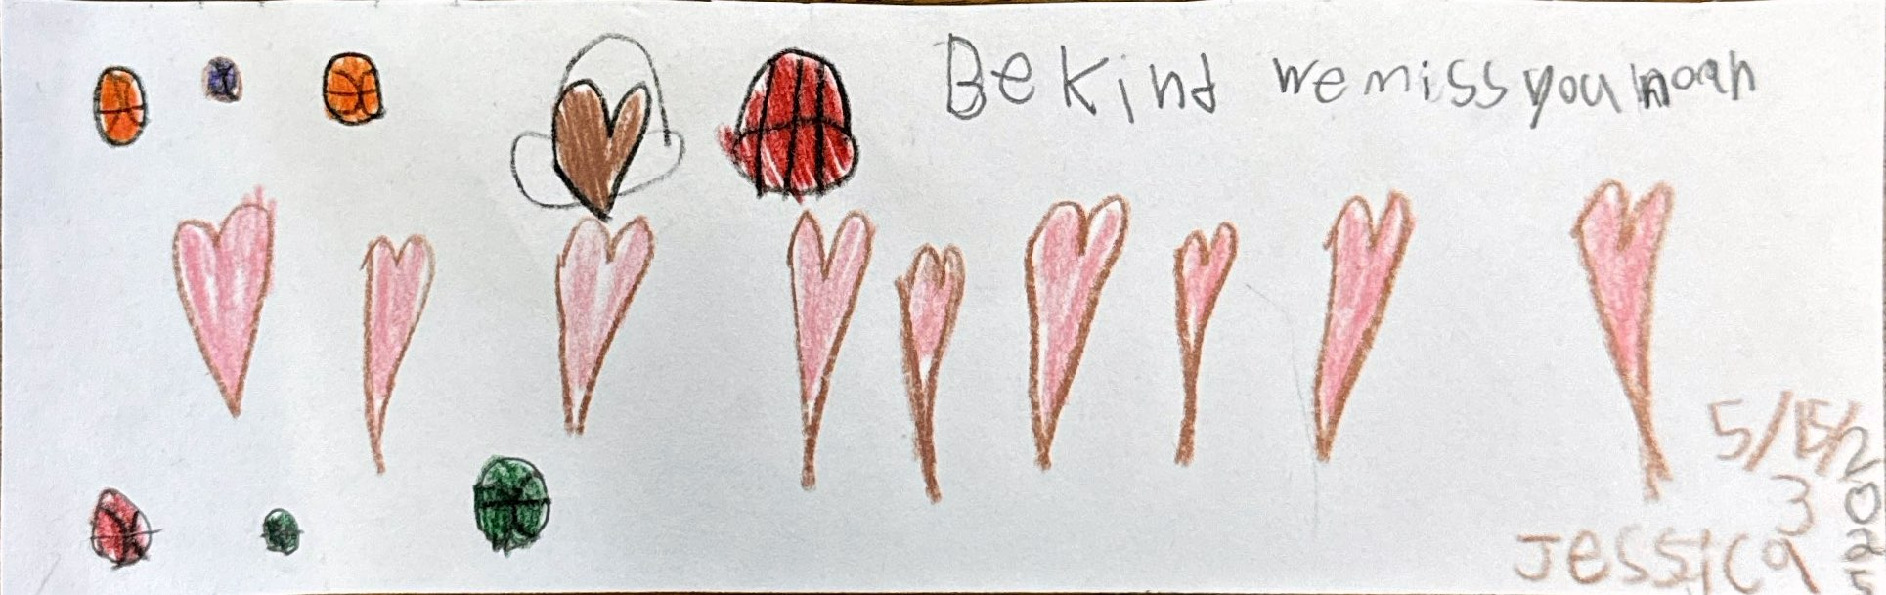 Be Kind we miss you noah
5/15/2025
3
Jessica